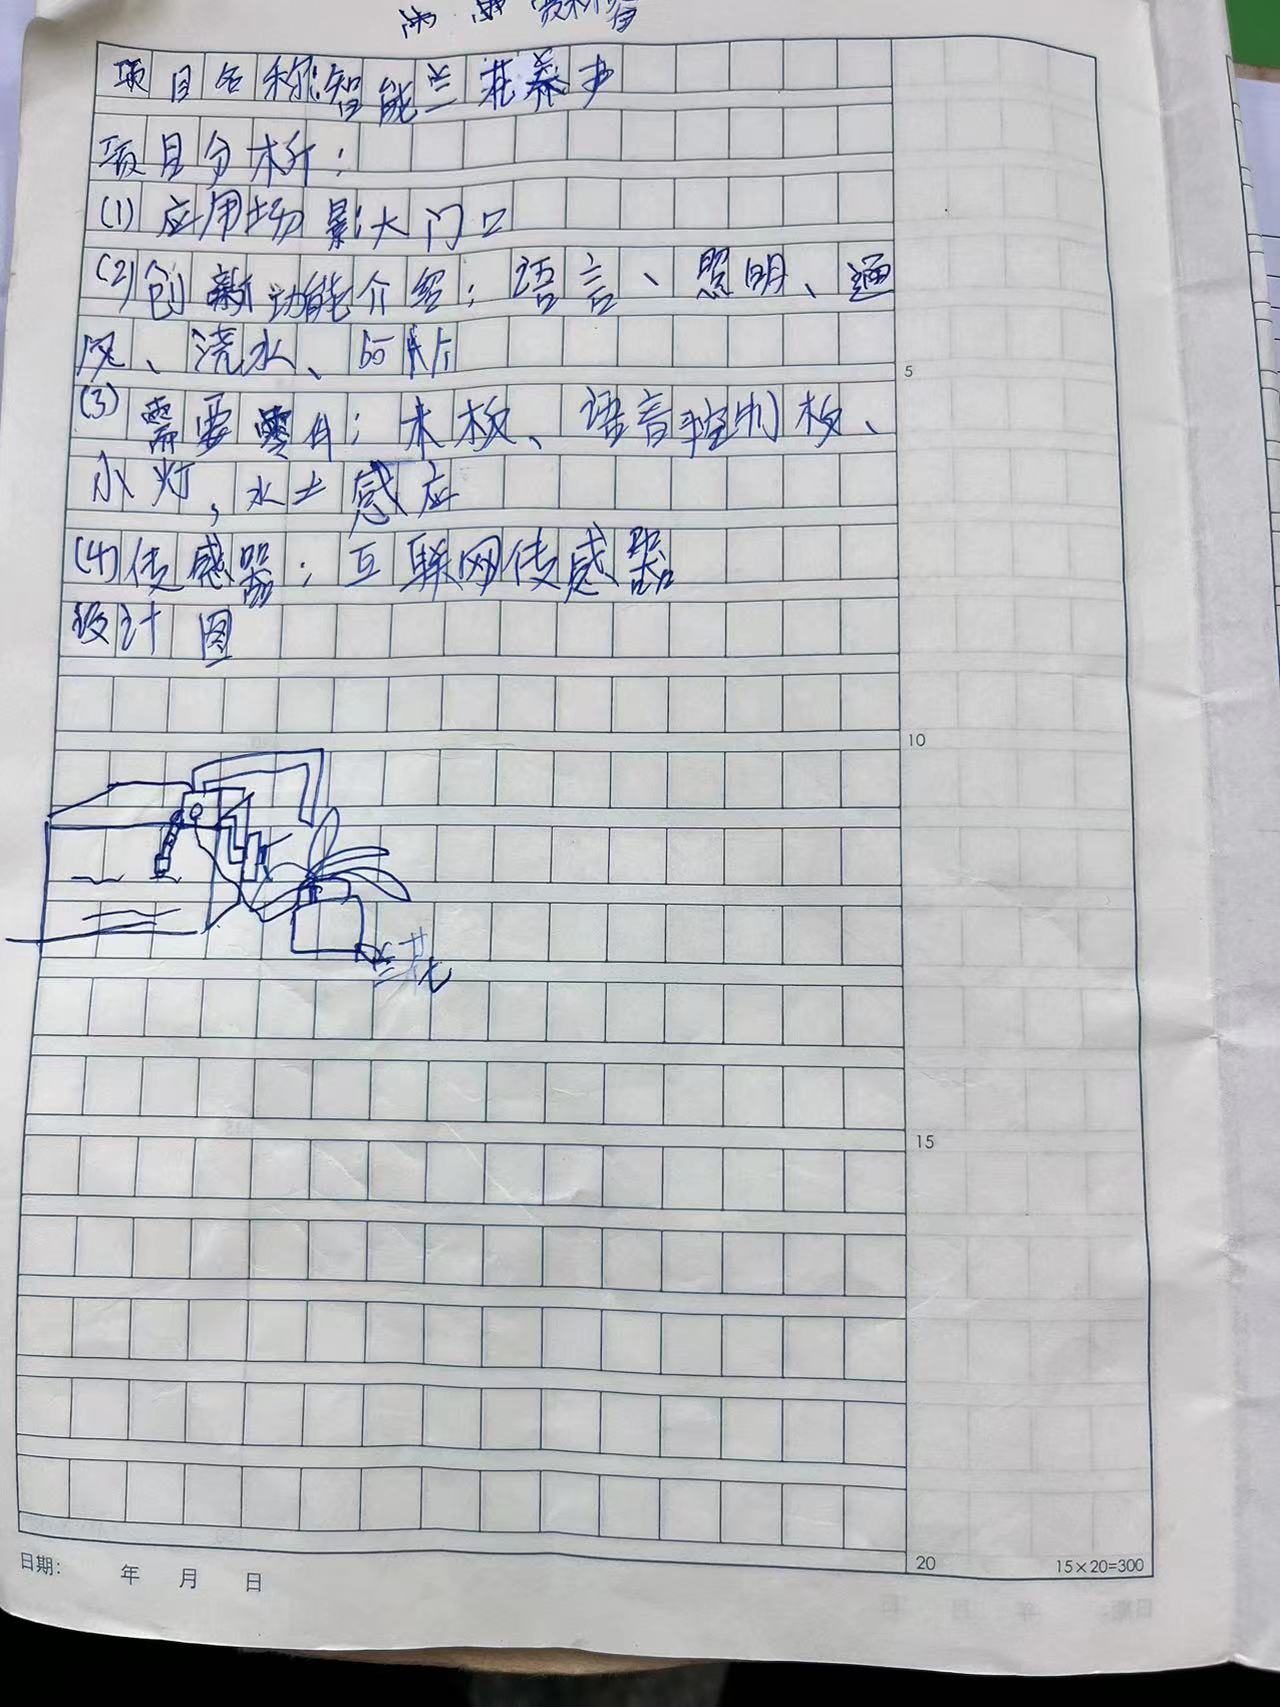 项目名称:智能兰花养护
项目分析:
(1)应用场景大门口
(2)创新功能介绍:语言、照明、通
风、浇水、
(3)需要零件:木板、语音控制板、
小灯,水土感应
(4)传感器:互联网传感器
设计图
兰花
5
10
15
20
15×20=300
日期: 年 月 日